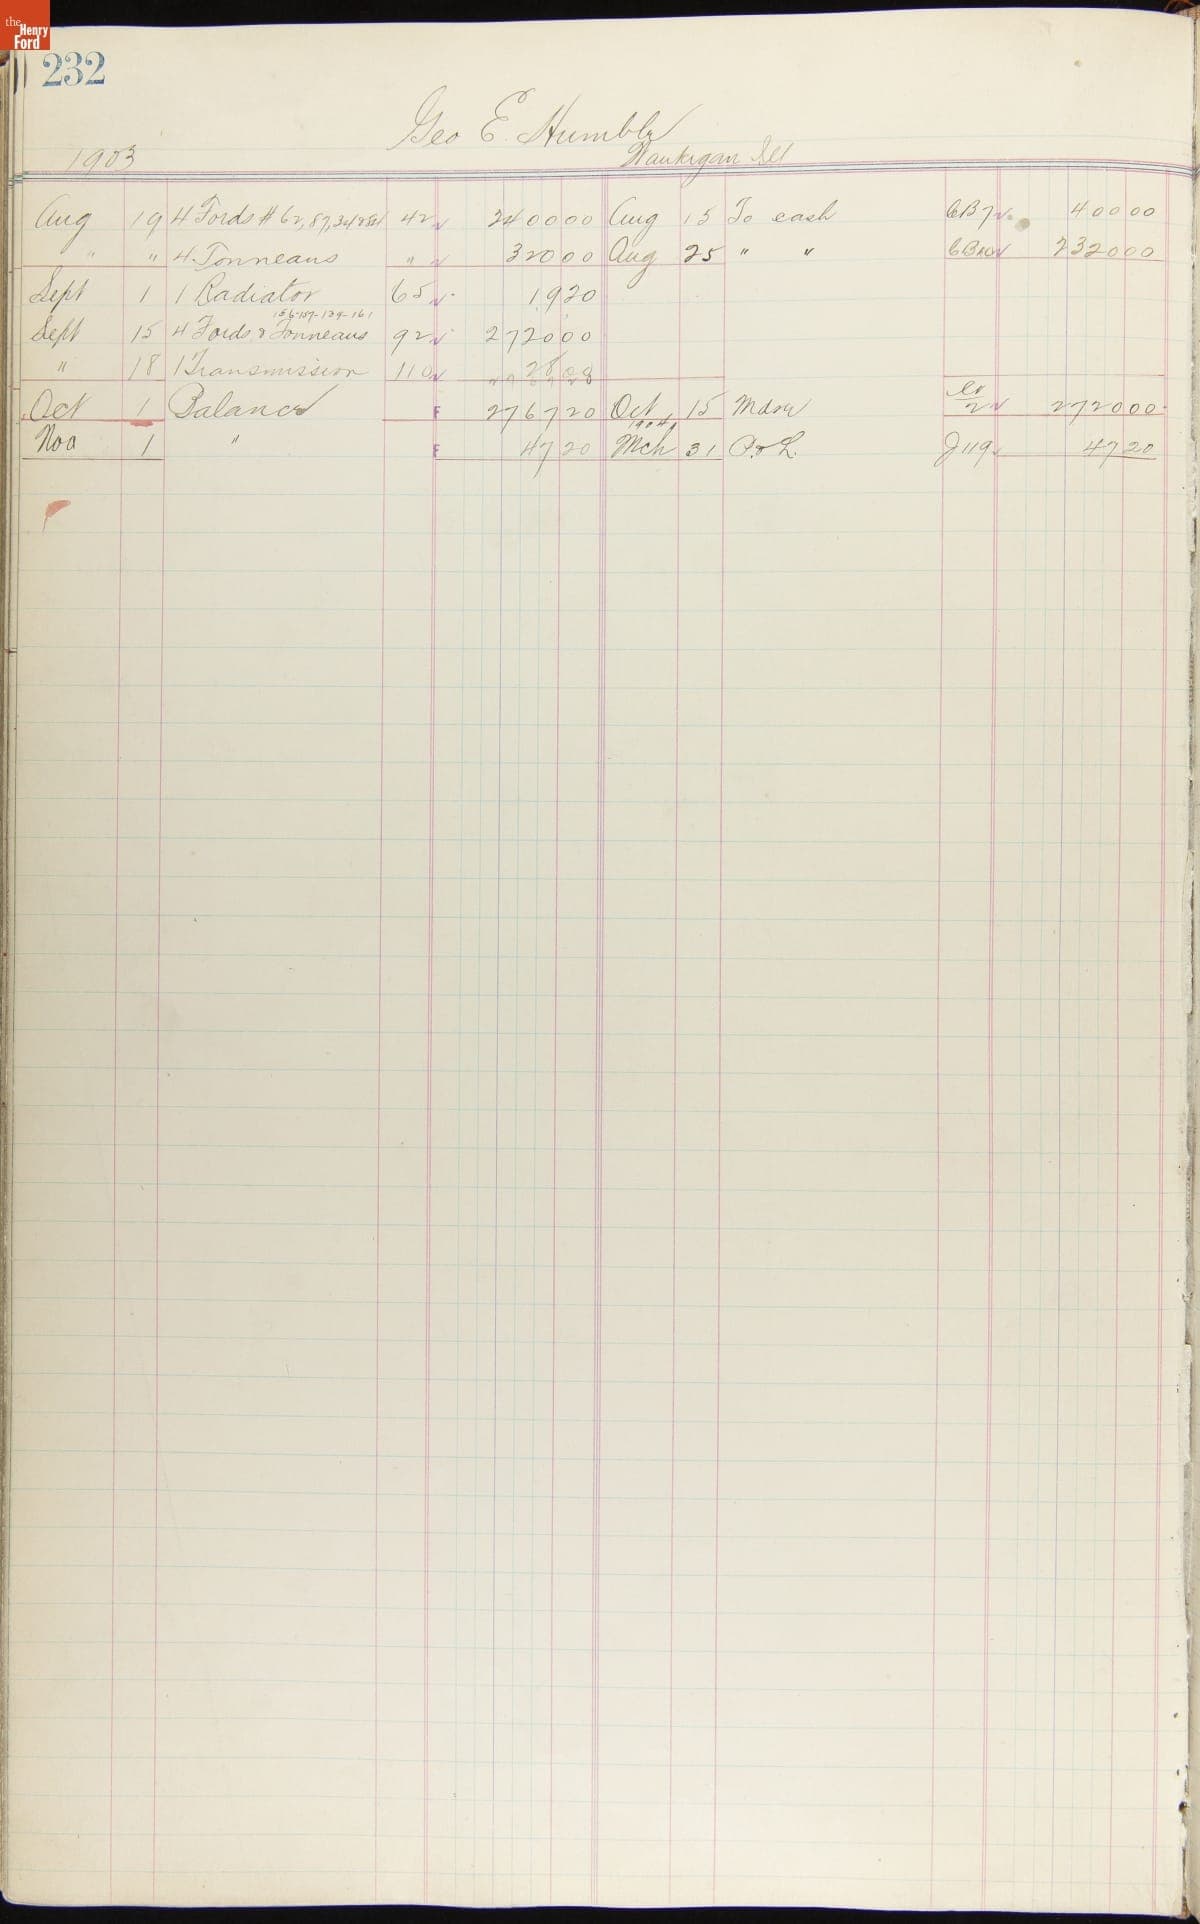 the Henry Ford
232
Geo E. Humble
1903 Waukegan Ill
Aug 19 4 Fords # 62, 87, 42 2400 00 Aug 15 To cash CB7 400 00
" " 4 Tonneaus " 320 00 Aug 25 " " CB10 2320 00
Sept 1 1 Radiator 65 19 20
156-157-159-161
Sept 15 4 Fords & Tonneaus 92 2720 00
" 18 1 Transmission 110 28 00
Oct 1 Balance F 2767 20 Oct 15 Mdse Cr 2 2720 00
1904
Nov 1 " F 47 20 Mch 31 P. & L. J 119 47 20